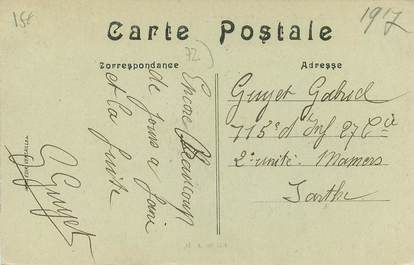 15€
1917
Carte Postale
72
Correspondance
Adresse
Encore Beaucoup
de jours a faire
et la fuite
G Guyet
Guyet Gabriel
115e d'Inf 27 Cie
2e unité. Mamers
Sarthe